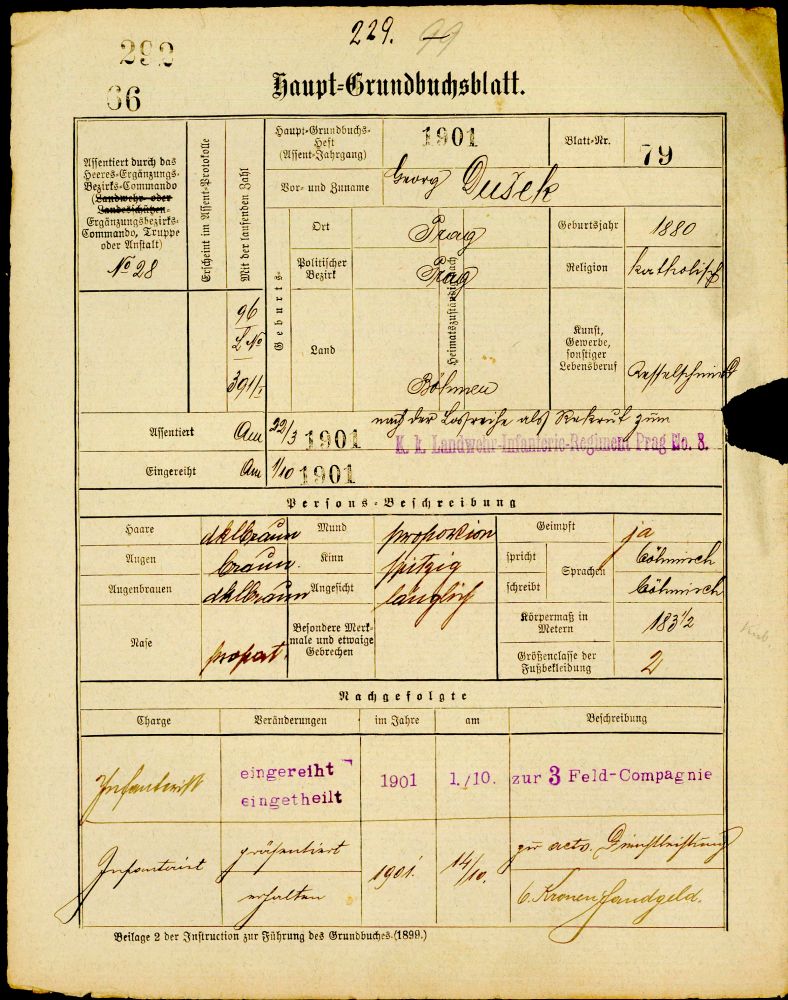 229. 99
292
66
Haupt-Grundbuchsblatt.
Assentiert durch das
Heeres-Ergänzungs-
Bezirks-Commando
(Landwehr- oder
Landesschützen-
Ergänzungsbezirks-
Commando, Truppe
oder Anstalt)
No 28
Erscheint im Assent-Protokolle
Mit der laufenden Zahl
96
L No
391/I
Haupt-Grundbuchs-
Heft
(Assent-Jahrgang)
1901
Blatt-Nr.
79
Vor- und Zuname
Georg Dušek
Geburts-
Ort
Prag
Politischer
Bezirk
Prag
Land
Böhmen
Heimatszuständig nach
Geburtsjahr
1880
Religion
katholisch
Kunst,
Gewerbe,
sonstiger
Lebensberuf
Kesselschmied
Assentiert
Am
22/3 1901
nach der Losreihe als Rekrut zum
K. k. Landwehr-Infanterie-Regiment Prag No. 8.
Eingereiht
Am
1/10 1901
Persons-Beschreibung
Haare
dklbraun
Mund
proportion
Geimpft
ja
Augen
braun.
Kinn
spitzig
spricht
Sprachen
böhmisch
Augenbrauen
dklbraun
Angesicht
länglich
schreibt
böhmisch
Nase
propot.
Besondere Merk-
male und etwaige
Gebrechen
Körpermaß in
Metern
183 1/2
Größenclasse der
Fußbekleidung
2
Nachgefolgte
Charge
Veränderungen
im Jahre
am
Beschreibung
Infanterist
eingereiht
eingetheilt
1901
1./10.
zur 3 Feld-Compagnie
Infanterist
präsentiert
1901.
14/10.
zur activ. Dienstleistung
erhalten
6 Kronen Handgeld.
Beilage 2 der Instruction zur Führung des Grundbuches (1899.)